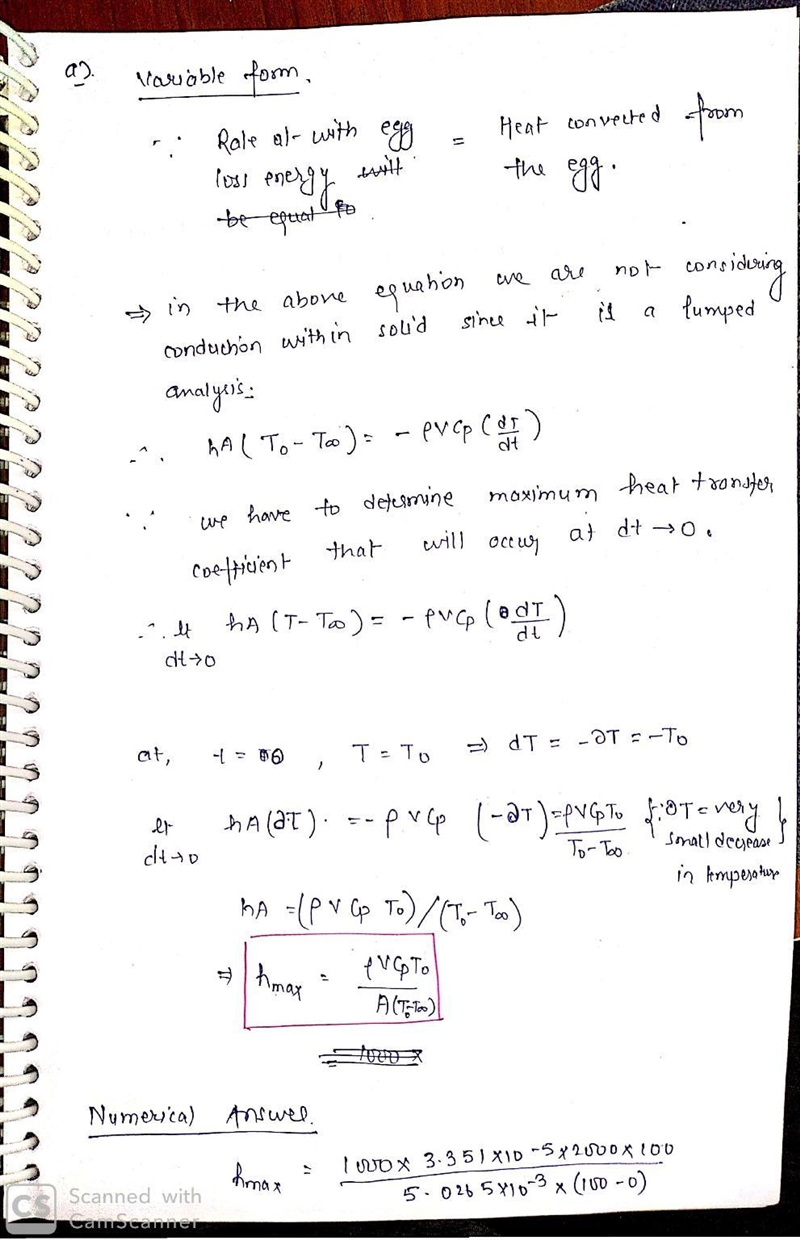 a).
Variable form.
∵ Rate at with egg = Heat convected from
loss energy will the egg.
be equal to
⇒ in the above equation we are not considering
conduction within solid since it is a lumped
analysis:
∴ hA(T₀ - T∞) = - ρVCp (dT/dt)
∵ we have to determine maximum heat transfer
coefficient that will occur at dt → 0.
∴ lt hA (T - T∞) = - ρVCp (dT/dt)
dt→0
at, t = 0, T = T₀ ⇒ dT = -∂T = -T₀
lt hA(∂T). = - ρVCp (-∂T) = ρVCpT₀/T₀-T∞ {∵ ∂T = very
dt→0 small decrease }
in temperature
hA = (ρVCp T₀)/(T₀ - T∞)
⇒ hmax = ρVCpT₀/A(T₀-T∞)
= 1000 x
Numerical Answer.
hmax = 1000 x 3.351 x 10 -5 x 2000 x 100 / 5.0265 x 10-3 x (100 - 0)
CS Scanned with
CamScanner